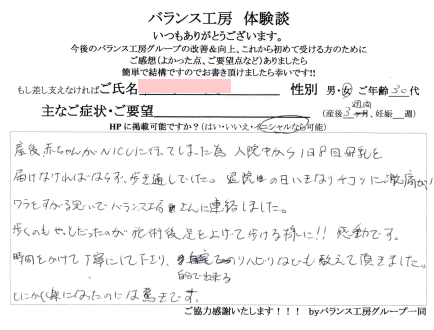 バランス工房 体験談
いつもありがとうございます。
今後のバランス工房グループの改善&向上、これから初めて受ける方のために
ご感想(よかった点、ご要望点など)ありましたら
簡単で結構ですのでお書き頂けましたら幸いです!!
もし差し支えなければご氏名 性別 男・女 ご年齢 30代
主なご症状・ご要望 (産後 3週間 ヶ月、妊娠 週)
HPに掲載可能ですか?(はい・いいえ・イニシャルなら可能)
産後赤ちゃんがNICUに行ってしまった為 入院中から1日8回母乳を
届けなければならず、歩き通しでした。退院の日いきなりチコツに激痛が!
ワラをもすがる思いでバランス工房さんに連絡しました。
歩くのもやっとだったのが施術後足を上げて歩ける様に!! 感動です。
時間をかけて丁寧にして下さり、自宅でのリハビリなども教えて頂きました。
自分で出来る
とにかく楽になったのには驚きです。
ご協力感謝いたします!!! byバランス工房グループ一同